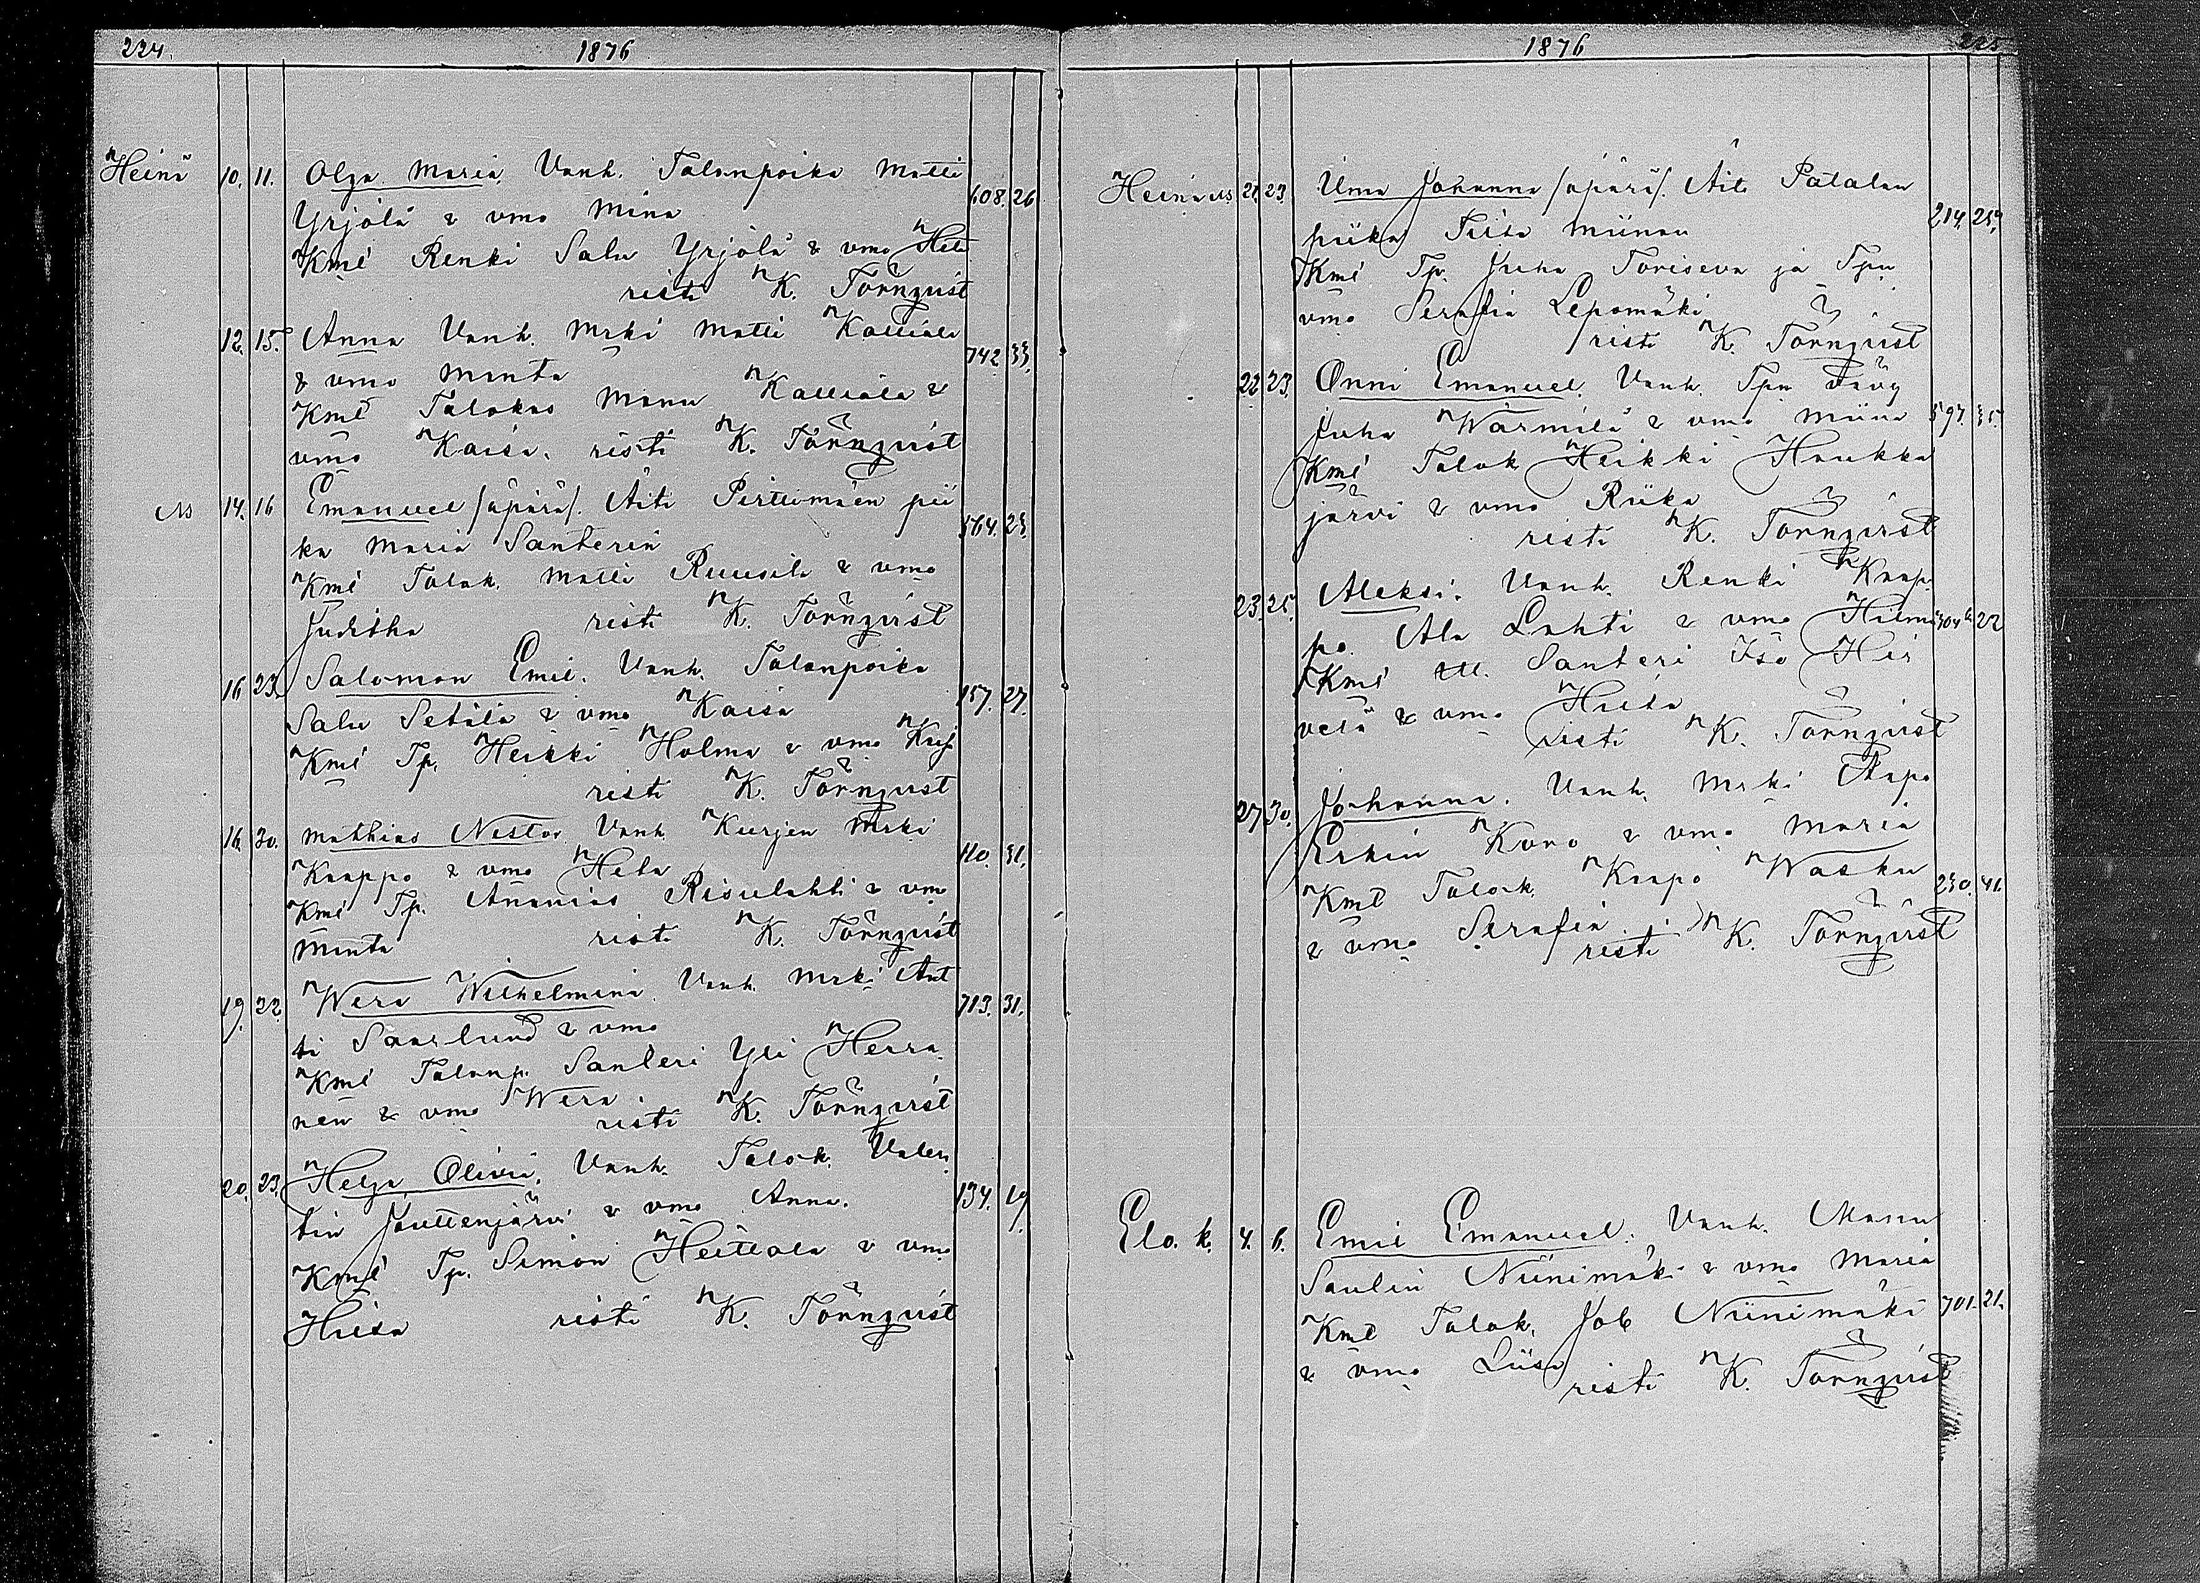 224. 1876
Heinä 10. 11. Olga Maria, Vanh. Talonpoika Matti
Yrjölä & vmo Mina 608. 26
Kml Renki Salu Yrjölä & vmo Hela
risti K. Törnqvist
12. 15. Anna Vanh. Mrki Matti Kalliala
& vmo Manta 742 33.
Kml Talokas Manu Kalliala &
vmo Kaisa. risti K. Törnqvist
14. 16 Emanuel /äpärä/. Äiti Pirttimäen pii
ka Maria Santerin 564. 23.
Kml Talok. Matti Ruusila & vmo
Juditha risti K. Törnqvist
16 23. Salomon Emil. Vanh. Talonpoika
Salu Setälä & vmo Kaisa 157. 27.
Kml Tp. Heikki Holma & vmo
risti K. Törnqvist
16. 30. Mathias Nestor Vanh. Kurjen Mrki
Kaappo & vmo Heta 110. 31.
Kml Tp. Ananias Risulahti & vmo
Manta risti K. Törnqvist
19. 22. Wera Wilhelmina. Vanh. Mrki Ant
ti Saarlund & vmo 713. 31.
Kml Talonp. Santeri Yli Herra
nen & vmo Wera. risti K. Törnqvist
20. 23. Helga Olivia, Vanh. Talok. Valen
tin Jouttenjärvi & vmo Anna. 134. 19.
Kml Tp. Simon Heittola & vmo
Hiisa risti K. Törnqvist
1876 225
Heinä 21. 23. Johanna /äpärä/. Äiti Patalan
piika Tiisa Miinan 214. 25.
Kml Tp. Juha Toriseva ja Tpn
vmo Serafia Lepomäki
risti K. Törnqvist
22 23. Onni Emanuel. Vanh. Tpn vävy
Juha Wärmilä & vmo Miina 597. 35.
Kml Talok Heikki Haukka
järvi & vmo Riika
risti K. Törnqvist
23. 25. Aleksi. Vanh. Renki Kaap
po Ala Lahti & vmo 22
Kml Santeri Iso Hir
velä & vmo Hiisa
risti K. Törnqvist
27 30. Johanna. Vanh. Mrki Aapo
Erkin Koro & vmo Maria
Kml Talok. Kaapo Wasku 230. 41.
& vmo Serafia
risti K. Törnqvist
Elo. k. 4. 6. Emil Emanuel. Vanh. Manu
Saulin Niinimäki & vmo Maria
Kml Talok. Job Niinimäki 701. 21.
& vmo Liisa
risti K. Törnqvist